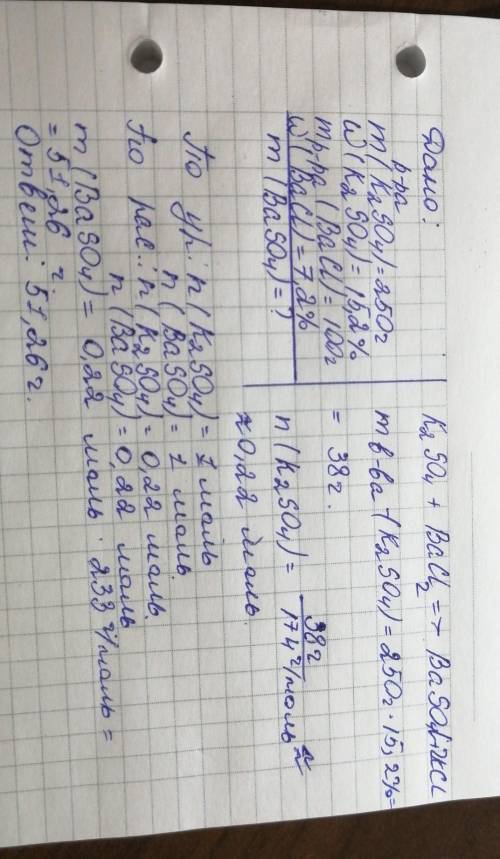 Дано:
р-ра
m(K2SO4)=250г
ω(K2SO4)=15,2%
mр-ра(BaCl)=100г
ω(BaCl)=7,2%
m(BaSO4)=?
K2SO4+BaCl2=>BaSO4+2KCl
m в-ва(K2SO4)=250г·15,2%=
=38г.
n(K2SO4)=38г/174г/моль≈
≈0,22 моль.
По ур.: n(K2SO4)=1 моль
n(BaSO4)=1 моль
По рас.: n(K2SO4)=0,22 моль.
n(BaSO4)=0,22 моль
m(BaSO4)=0,22 моль·233г/моль=
=51,26 г.
Ответ: 51,26г.